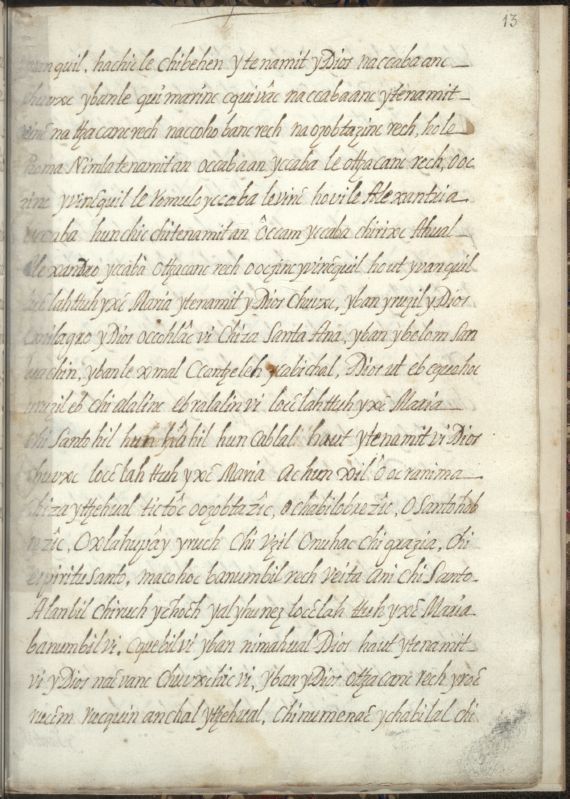 13
quil, hachic le chibehen ytenamit yDios naccabaanc
ybanle quimarinc cquivâc naccabaanc ytenamit
na tħacanc rech naccoho banc rech naozobtazinc rech, ho le
Roma Nimla tenamit an occabaan yccaba le otħacanc rech, ooc
yvinēquil le Romulo yccaba levinē hovi le Alexantria
occaba hunchic chitenamit an Ôccam yccaba chirixc Ahual
Alexandro yccabâ otħacanc rech oocjinc yvinēquil hout yvanquil
locēlah ttuh yxē Maria ytenamit yDios Chuvxc, yban yruzil yDios
ymilagro yDios ocochlâc vi Chiza Santa Ana, yban ybolom San
Juachin, ybanle xmal Ccantzeleh ycabichal, Dios ut eb cequahoc
eb chi alalinc eb ralalin vi locēlah ttuh yxē Maria
chi Santohil hun habil hun Cablal haut ytenamit vi Dios
Chuvxc locēlah ttuh yxē Maria Achun xil Ô oc ranima
chiza ytzehual tictôc oozobtazîc, ochabilobrezîc, O Santohob
rezîc, Oxlahupây yruch Chi Vzil Onuhac chi grazia, Chi
espiritu Santo, macohoc banumbil rech veita ani Chi Santo
Alanbil Chiruch ychoch yalyhunez locēlah ttuh yxē Maria
banumbil vi, cquebil vi yban nimahual Dios haut ytenamit
vi yDios naēvanc Chuvxclâc vi, yban yDios otħacanc rech yroē
rucēm rucquin anchal ytzehual, Chinumenaē ychabilal chi